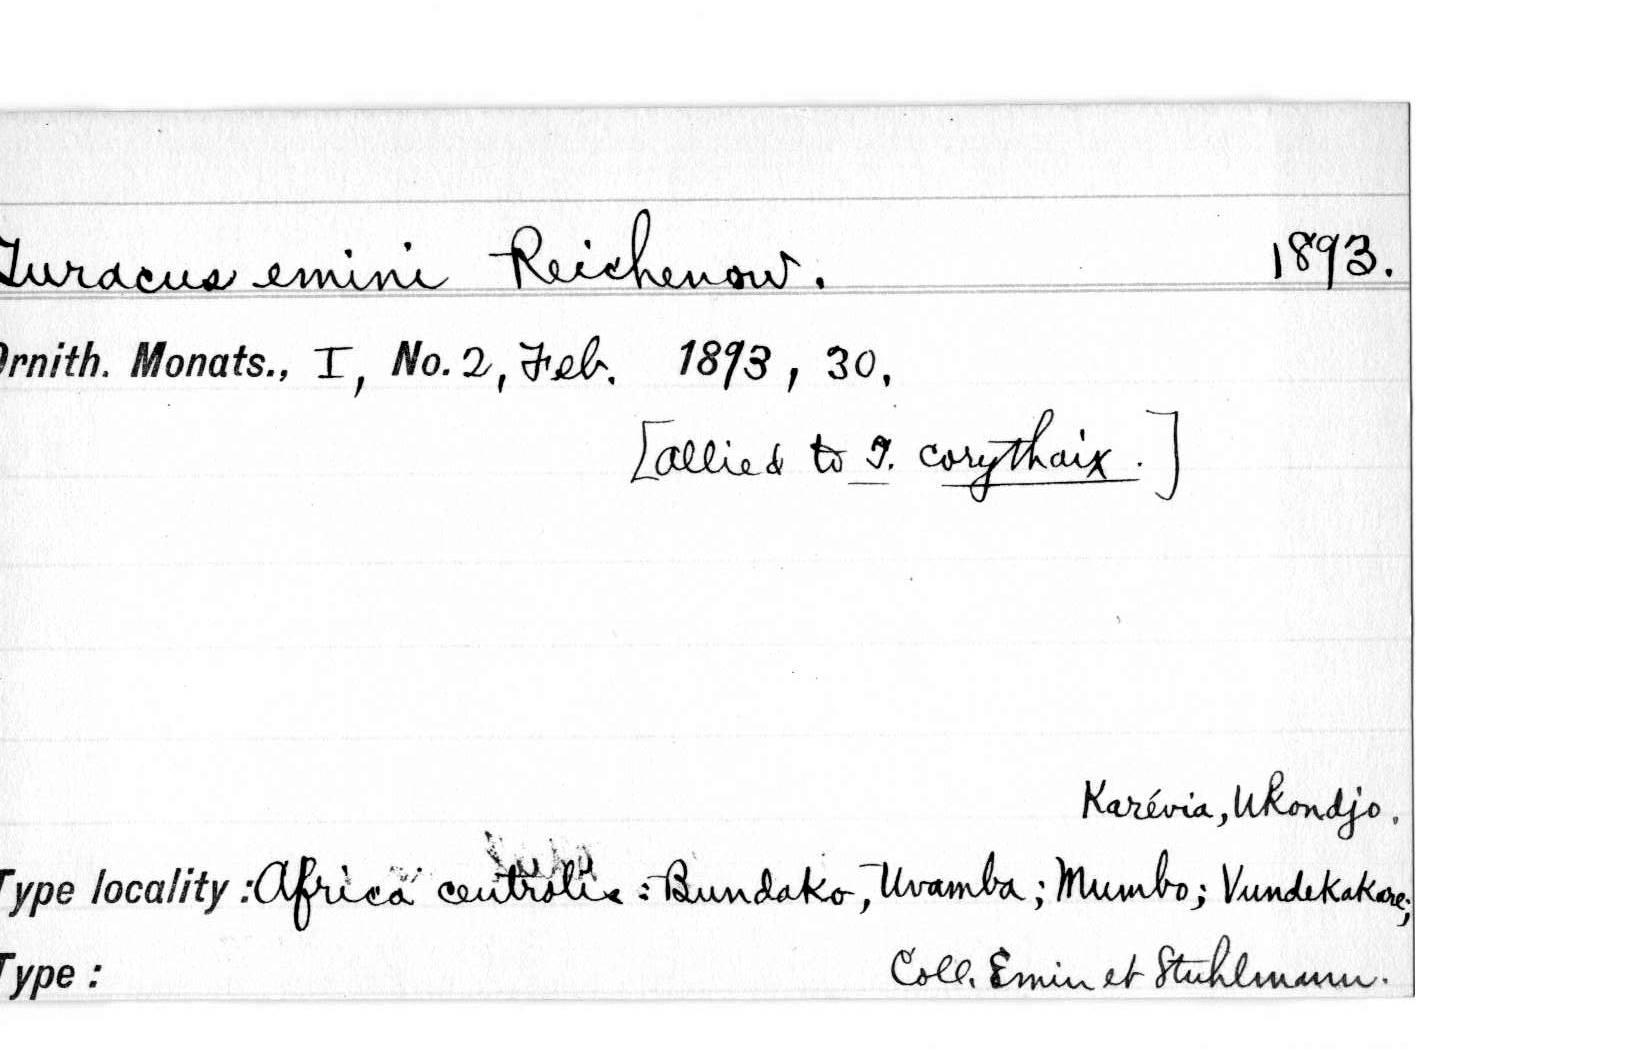 Turacus emini Reichenow. 1893.
Ornith. Monats., I, No. 2, Feb. 1893, 30.
[allied to T. corythaix.]
Karévia, Ukondjo.
Type locality: Africa centralis: Bundako, Uvamba; Mumbo; Vundekakare;
Type: Coll. Emin et Stuhlmann.